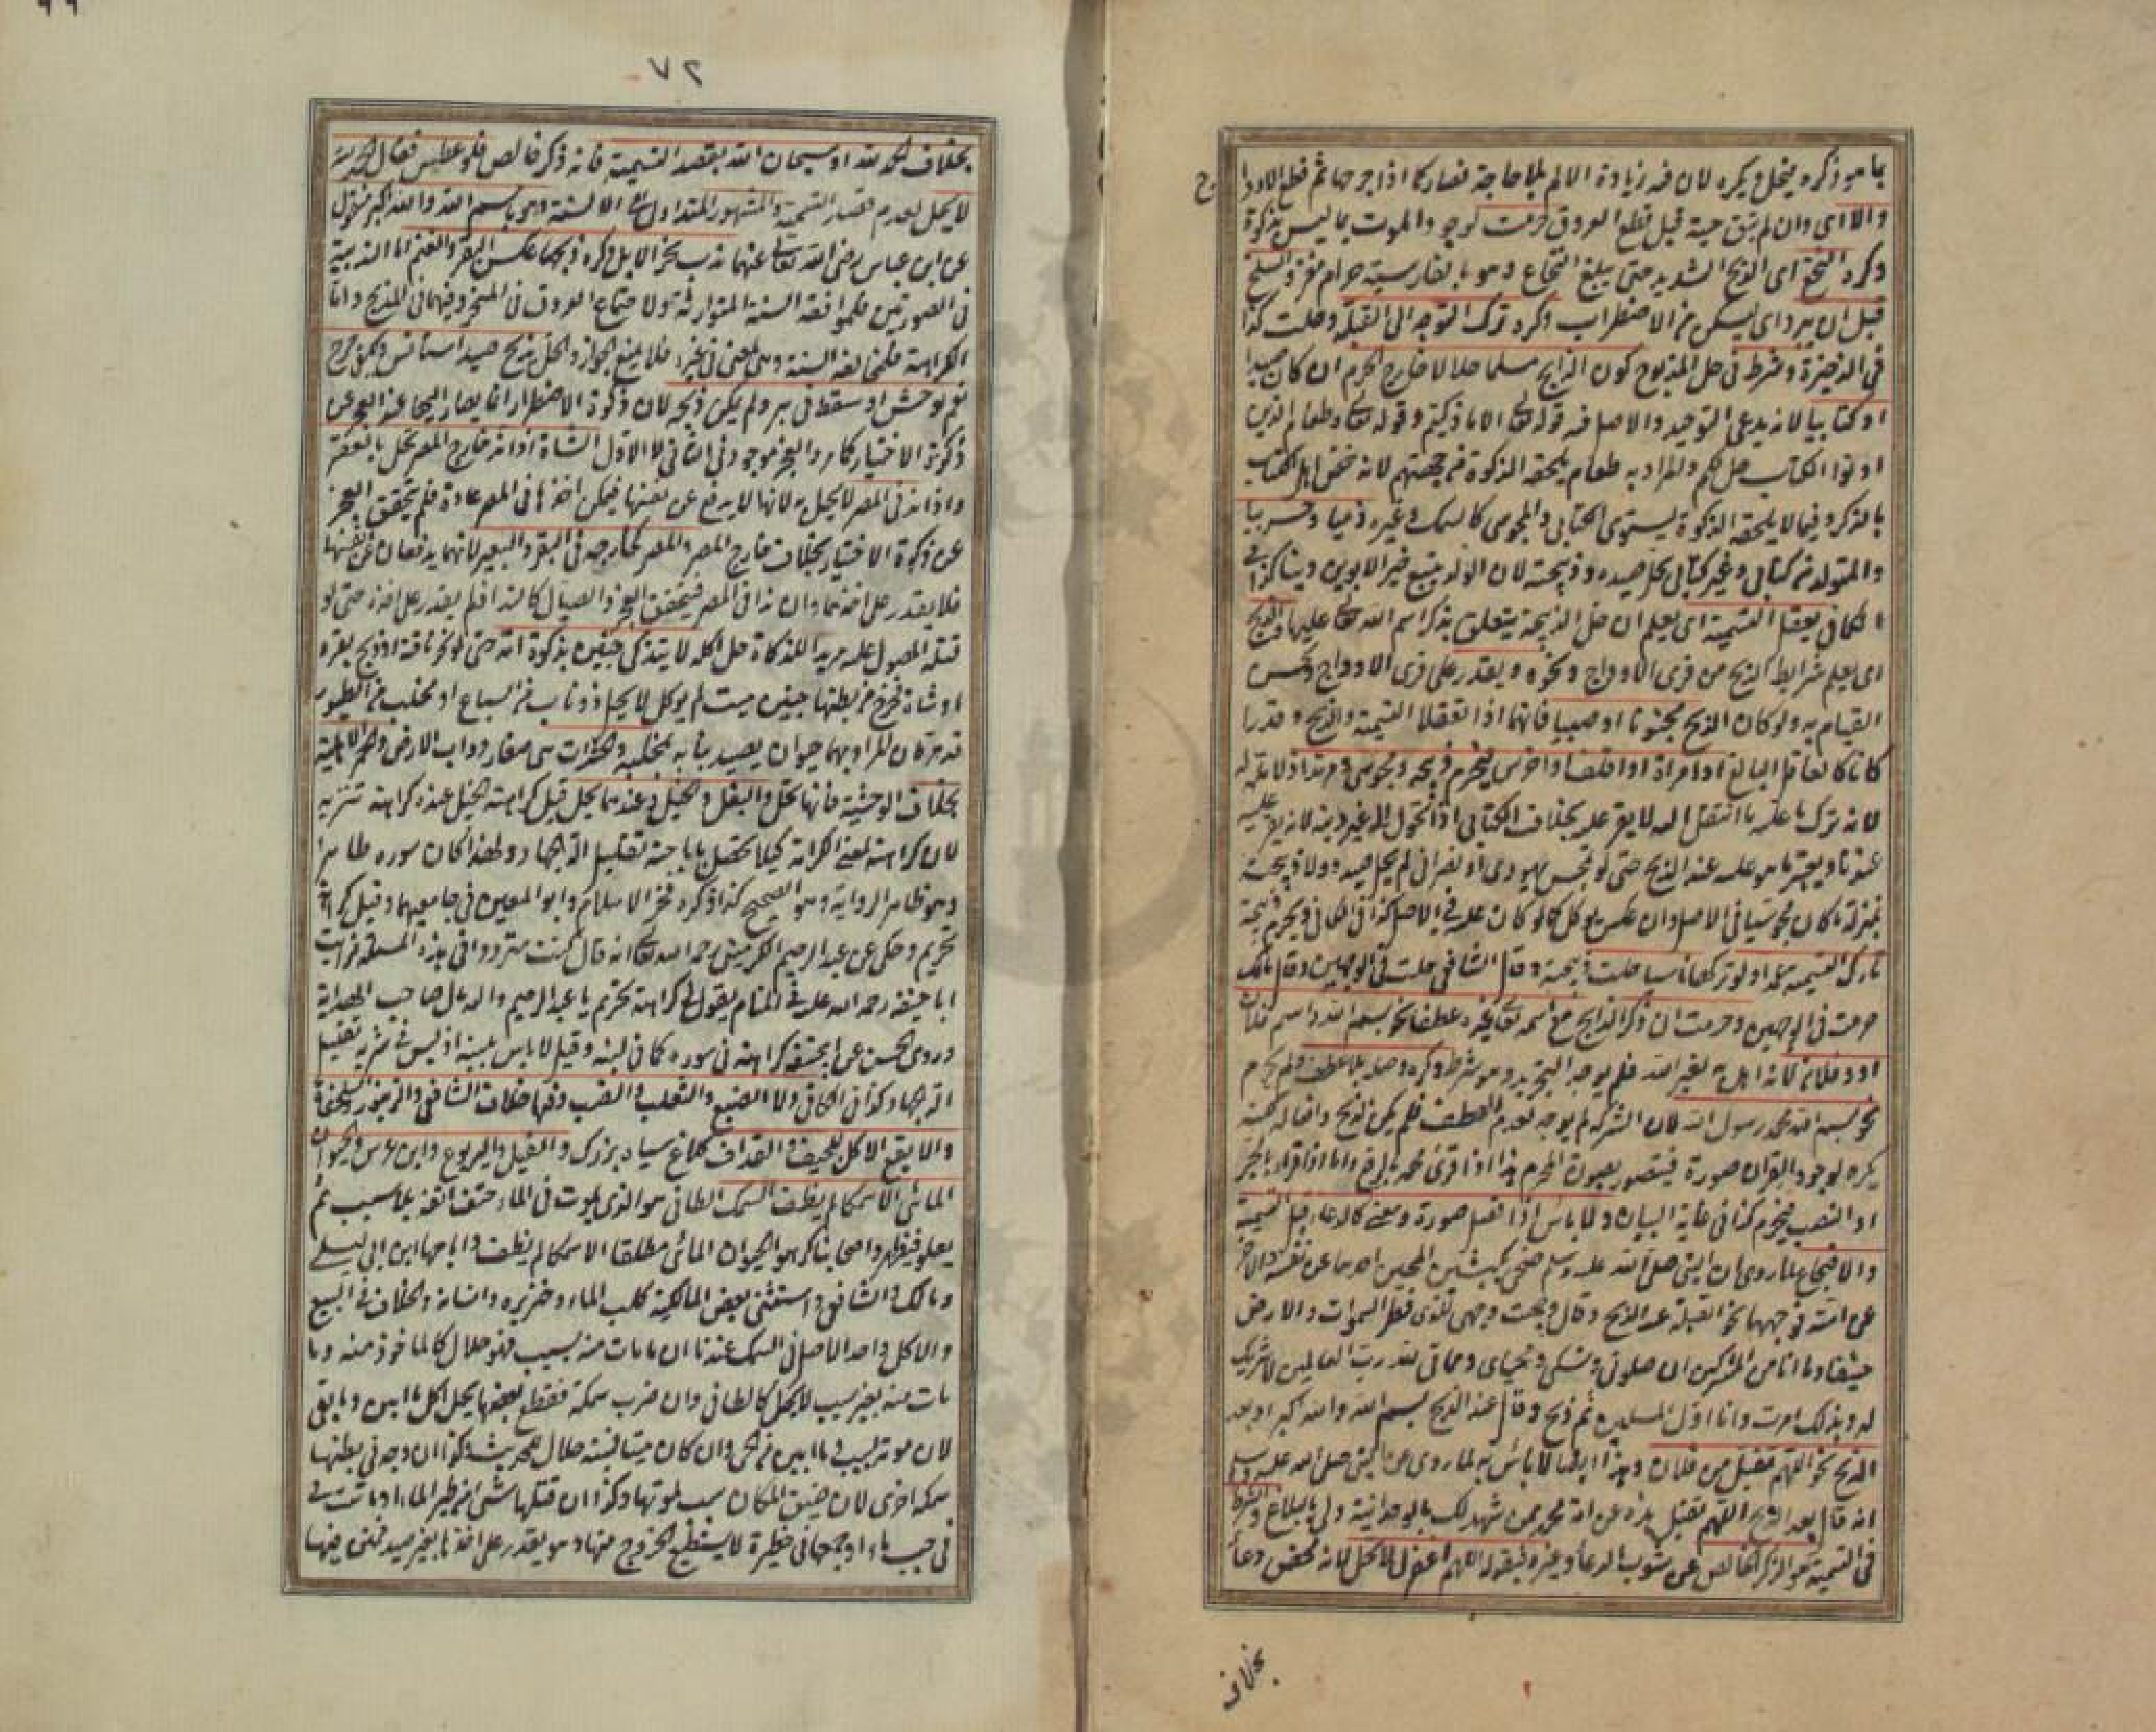 بما هو ذكره فيحل ويكره لان فيه زيادة الالم بلا حاجة فصار كما اذا جرحها ثم قطع الاودا
ج
والا اى وان لم تبق حية قبل قطع العروق حرمت لوجود الموت بما ليس بذكوة
وكره النخع اى الذبح الشديد حتى يبلغ النخاع وهو بالفارسية حرام مغز والسلخ
قبل ان يبرد اى يسكن من الاضطراب وكره ترك التوجه الى القبلة وحلت كذا
فى الذخيرة وشرط فى حل المذبوح كون الذابح مسلما حلالا خارج الحرم ان كان صيدا
او كتابيا لانه يدعى التوحيد والاصل فيه قوله تعالى الا ما ذكيتم وقوله تعالى وطعام الذين
اوتوا الكتاب حل لكم والمراد به طعام يلحقه الذكوة من جهتهم لانه خص اهل الكتاب
بالذكر وفيما لا يلحقه الذكوة يستوى الكتابى والمجوسى كالسمك وغيره ذميا وحربيا
والمتولد من كتابى وغير كتابى يحل صيده وذبيحته لان الولد يتبع خير الابوين دينا كذا فى
الكافى يعقل التسمية اى يعلم ان حل الذبيحة يتعلق بذكر اسم الله تعالى عليها والذبح
اى يعلم شرايط الذبح من فرى الاوداج ونحوه ويقدر على فرى الاوداج ويحسن
القيام به ولو كان الذابح مجنونا او صبيا فانهما اذا تعقلا التسمية والذبح وقدرا
كانا كالعاقل البالغ او امراة او اقلف او اخرس فيحرم ذبيحة مجوسى ومرتد اذ لا ملة له
لانه ترك ما عليه وما انتقل اليه لا يقر عليه بخلاف الكتابى اذا تحول الى غير دينه لانه يقر عليه
عندنا ويعتبر ما هو عليه عند الذبح حتى لو تمجس يهودى او نصرانى لم يحل صيده ولا ذبيحته
بمنزلة ما كان مجوسيا فى الاصل وان عكس يوكل كما لو كان عليه فى الاصل كذا فى الكافى ويحرم ذبيحة
تارك التسمية عمدا ولو تركها ناسيا حلت ذبيحته وقال الشافعى حلت فى الوجهين وقال مالك
حرمت فى الوجهين وحرمت ان ذكر الذابح مع اسمه تعالى غيره عطفا نحو بسم الله واسم فلان
او وفلان لانه اهل به لغير الله فلم يوجد التجريد وهو شرط وكره وصله بلا عطف ولم يحرم
نحو بسم الله محمد رسول الله لان الشركة لم يوجد لعدم العطف فلم يكن الذبح واقعا له لكنه
يكره لوجود القران صورة فيتصور بصورة المحرم هذا اذا قرئ محمد بالرفع واما اذا قراه بالجر
او النصب فيحرم كذا فى غاية البيان ولا باس اذا فصل صورة ومعنى كالدعاء قبل التسمية
والاضجاع لما روى ان النبى صلى الله عليه وسلم ضحى بكبشين املحين احدهما عن نفسه والاخر
عن امته فوجههما نحو القبلة عند الذبح وقال وجهت وجهى للذى فطر السموات والارض
حنيفا وما انا من المشركين ان صلوتى ونسكى ومحياى ومماتى لله رب العالمين لا شريك
له وبذلك امرت وانا اول المسلمين ثم ذبح وقال عند الذبح بسم الله والله اكبر او بعد
الذبح نحو اللهم تقبل من فلان وهذا ايضا لا باس به لما روى عن النبى صلى الله عليه وسلم
انه قال بعد الذبح اللهم تقبل هذه عن امة محمد ممن شهد لك بالوحدانية ولى بالبلاغ والشرط
فى التسمية هو الذكر الخالص عن شوب الدعاء وغيره فبقوله اللهم اغفر لى لا تحل لانه محض دعاء
بخلاف
٧٢
بخلاف الحمد لله او سبحان الله بقصد التسمية فانه ذكر خالص فلو عطس فقال الحمد لله
لا يحل لعدم قصد التسمية والمشهور المتداول على الالسنة وهو باسم الله والله اكبر منقول
عن ابن عباس رضى الله تعالى عنهما ندب نحر الابل وكره ذبحها عكس البقر والغنم اما الندبية
فى الصورتين فلموافقة السنة المتوارثة ولاجتماع العروق فى المنحر وفيهما فى المذبح واما
الكراهة فلمخالفة السنة وهى لمعنى فى غيره فلا يمنع الجواز والحل يذبح صيد استانس ويكفى جرح
نعم توحش او سقط فى بير ولم يمكن ذبحه لان ذكوة الاضطرار انما يصار اليها عند العجز عن
ذكوة الاختيار كما مر والعجز موجود فى الثانى لا الاول الشاة اذا ند خارج المصر تحل بالعقر
واذا ند فى المصر لا يحل به لانها لا يدفع عن نفسها فيمكن اخذها فى المصر عادة فلم يتحقق العجز
عن ذكوة الاختيار بخلاف خارج المصر والمصر كخارجه فى البقر والبعير لانهما يدفعان عن نفسها
فلا يقدر على اخذهما وان ندا فى المصر فيتحقق العجز والصيال كالند اذا لم يقدر على اخذه حتى لو
قتله المصول عليه مريدا للذكاة حل اكله لا يتذكى جنين بذكوة امه حتى لو نحر ناقة او ذبح بقرة
او شاة فخرج من بطنها جنين ميت لم يوكل لا يحل ذو ناب من السباع او مخلب من الطيور
قد مر ان المراد بهما حيوان يصيد بنابه ومخلبه والحشرات هى صغار دواب الارض والحمر الاهلية
بخلاف الوحشية فانها تحل والبغل والخيل وعندهما يحل قيل كراهة الخيل عنده كراهة تنزيه
لان كراهته لمعنى الكرامة كيلا تحصل باباحته تقليل الة الجهاد ولهذا كان سوره طاهرا
وهو ظاهر الرواية وهو الصحيح كذا ذكره فخر الاسلام وابو المعين فى جامعيهما وقيل كراهة
تحريم وحكى عن عبد الرحيم الكرمينى رحمه الله تعالى انه قال كنت مترددا فى هذه المسئلة فرايت
ابا حنيفة رحمه الله عليه فى المنام يقول لى كراهة تحريم يا عبد الرحيم واليه مال صاحب الهداية
وروى الحسن عن ابى حنيفة كراهته فى سوره كما فى لبنه وقيل لا باس بلبنه اذ ليس فى شربه تقليل
الة الجهاد كذا فى الكافى ولا الضبع والثعلب والضب وفيها خلاف الشافعى والزنبور والسلحفاة
والابقع الاكل للجيف والغداف كلاغ سياه بزرك والفيل واليربوع وابن عرس والحيوان
المائى الا سمكا لم يطف السمك الطافى هو الذى يموت فى الماء حتف انفه بلا سبب ثم
يعلو فيظهر واصحابنا كرهوا الحيوان المائى مطلقا الا سمكا لم يطف واباحها ابن ابى ليلى
ومالك والشافعى واستثنى بعض المالكية كلب الماء وخنزيره وانسانه والخلاف فى البيع
والاكل واحد الاصل فى السمك عندنا ان ما مات منه بسبب فهو حلال كالماخوذ منه وما
مات منه بغير سبب لا يحل كالطافى وان ضرب سمكة فقطع بعضها يحل اكل ما ابين وما بقى
لان موته بسبب وما ابين من الحى وان كان ميتا فميتته حلال للحديث وكذا ان وجد فى بطنها
سمكة اخرى لان ضيق المكان سبب لموتها وكذا ان قتلها شئ من طير الماء او ماتت فى
فى جب ماء او جمعها فى حظيرة لا يستطيع الخروج منها وهو يقدر على اخذها بغير صيد فمتن فيها